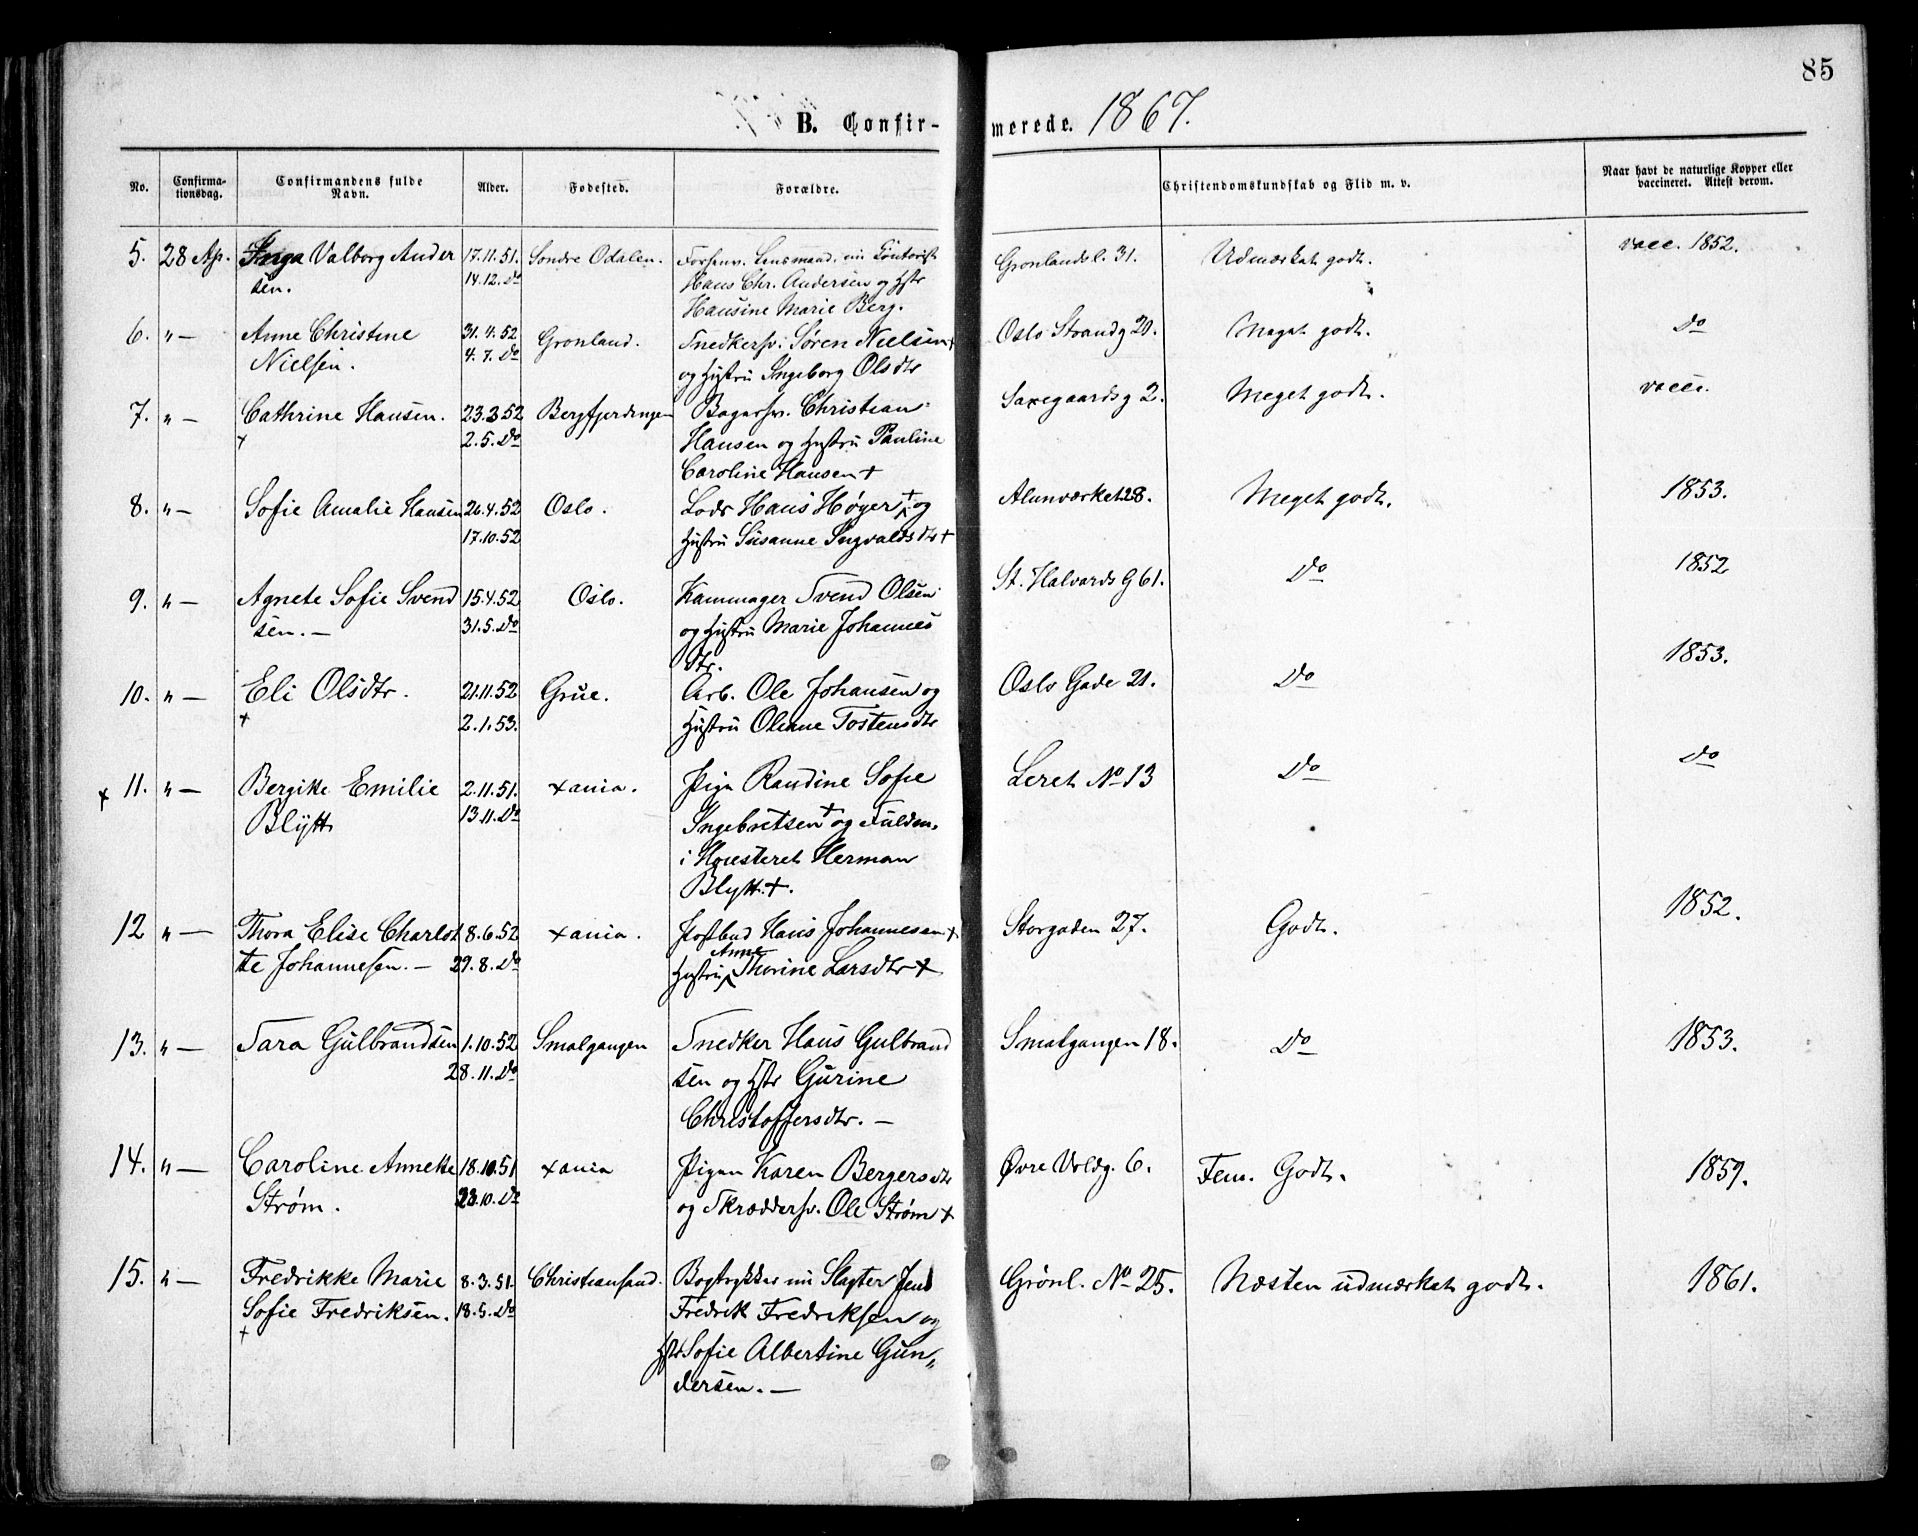 85
B. Confir-
merede. 1867.
No.
Confirma-
tionsdag.
Confirmandens fulde
Navn.
Alder.
Fødested.
Forældre.
Christendomskundskab og Flid m. v.
Naar havt de naturlige Kopper eller
vaccineret. Attest derom.
5. 28 Ap. Inga Valborg Ander 17.11.51. Sondre Odalen. Forhenv. Lensmand, nu Contorist Gronlandsl. 31. Udmærket godt. vacc. 1852.
sen. 14.12. do Hans Chr. Andersen og Hstr
Hansine Marie Berg.
6. "— Anne Christine 31.4.52 Gronland. Snedkersv. Søren Nielsen + Oslo Strandg 20. Meget godt. do
Nielsen. 4.7. do og Hustru Ingeborg Olsdtr
7. "— Cathrine Hansen. 23.3 52 Bergfjerdingen Bagersv. Christian Saxegaardsg 2. Meget godt. vacc.
+ 2.5. do Hansen og Hustru Pauline
Caroline Hansen +
8. "— Sofie Amalie Hansen 26.4.52 Oslo. Lods Hans Høyer + og Alunværket 28. Meget godt. 1853.
17.10.52 Hustru Susanne Ingvaldsdtr +
9. "— Agnete Sofie Svend 15.4.52 Oslo. Kammager Svend Olsen St. Halvards G 61. do 1852
sen. — 31.5. do og Hustru Marie Johannes
dtr.
10. "— Eli Olsdtr. 21.11.52 Grue. Arb. Ole Johansen og Oslo Gade 21. do 1853.
+ 2.1.53. Hustru Oleane Tostensdtr
+ 11. "— Bergitte Emilie 2.11.51. xania. Pige Randine Sofie Leret No 13 do do
Blytt 13.11. do Ingebretsen + og Fuldm.
i Herman
Blytt. +.
12 "— Thora Elise Charlot 8.6.52 xania. Postbud Hans Johannesen + Storgaden 27. Godt. 1852.
te Johannesen. — 29.8. do Hustru Anne Thorine Larsdtr +
13. "— Sara Gulbrandsen 1.10.52 Smalgangen Snedker Hans Gulbrand Smalgangen 18. do 1853.
28.11. do sen og Hstr Gurine
Christoffersdtr. —
14. "— Caroline Annette 18.10.51 xania Pigen Karen Bergersdtr Øvre Voldg. 6. Tem. Godt. 1859.
Strøm. 23.10. do og Skræddersv. Ole Strøm +
15. "— Fredrikke Marie 8.3.51. Christiansand. Bogtrykker nu Slagter Jens Grönl. No 25. Næsten udmærket godt. 1861.
Sofie Fredriksen. 18.5. do Fredrik Fredriksen og
+ Hstr Sofie Albertine Gun„
dersen. —